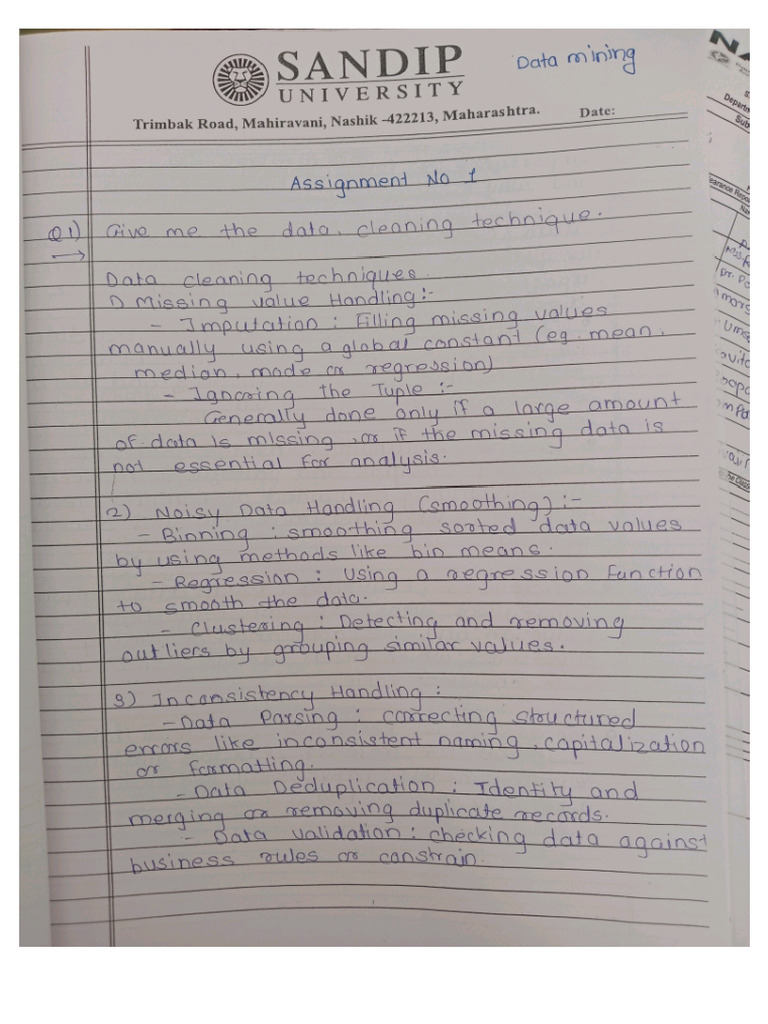 SANDIP
UNIVERSITY
Data mining
Trimbak Road, Mahiravani, Nashik -422213, Maharashtra.
Date:
Assignment No 1
Q1) Give me the data, cleaning technique.
Data cleaning techniques.
1) Missing value Handling:-
- Imputation : Filling missing values
manually using a global constant (eg. mean,
median, mode or regression)
- Ignoring the Tuple :-
Generally done only if a large amount
of data is missing, or if the missing data is
not essential for analysis.
2) Noisy Data Handling (smoothing) :-
- Binning : smoothing sorted data values
by using methods like bin means.
- Regression : Using a regression function
to smooth the data.
- Clustering : Detecting and removing
outliers by grouping similar values.
3) Inconsistency Handling :
- Data Parsing : correcting structured
errors like inconsistent naming, capitalization
or formatting.
- Data Deduplication : Identity and
merging or removing duplicate records.
- Data validation : checking data against
business rules or constrain.